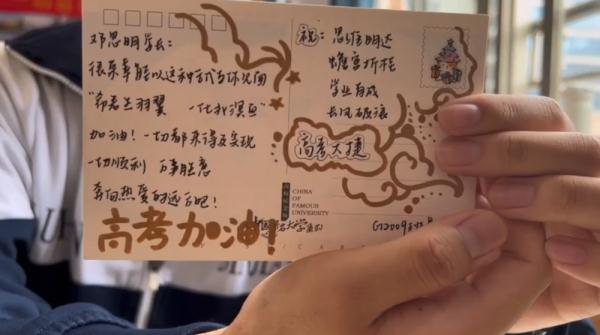 邓思明学长：
很荣幸能以这种方式与你见闻
加油！一切都来得及实现
一切顺利 万事胜意
奔向热爱的远方吧！
高考加油！
祝：思维明达
蟾宫折桂
学业有成
长风破浪
高考大捷
CHINA
OF
FAMOUS
UNIVERSITY